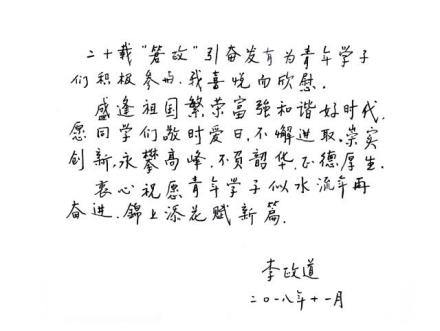 二十载“箸政”引奋发有为青年学子
们积极参与,我喜悦而欣慰.
盛逢祖国繁荣富強和谐好时代.
愿同学们敬时爱日,不懈进取,崇实
创新,永攀高峰,不负韶华,正德厚生.
衷心祝愿青年学子似水流年再
奋进.錦上添花赋新篇.
李政道
二〇一八年十一月